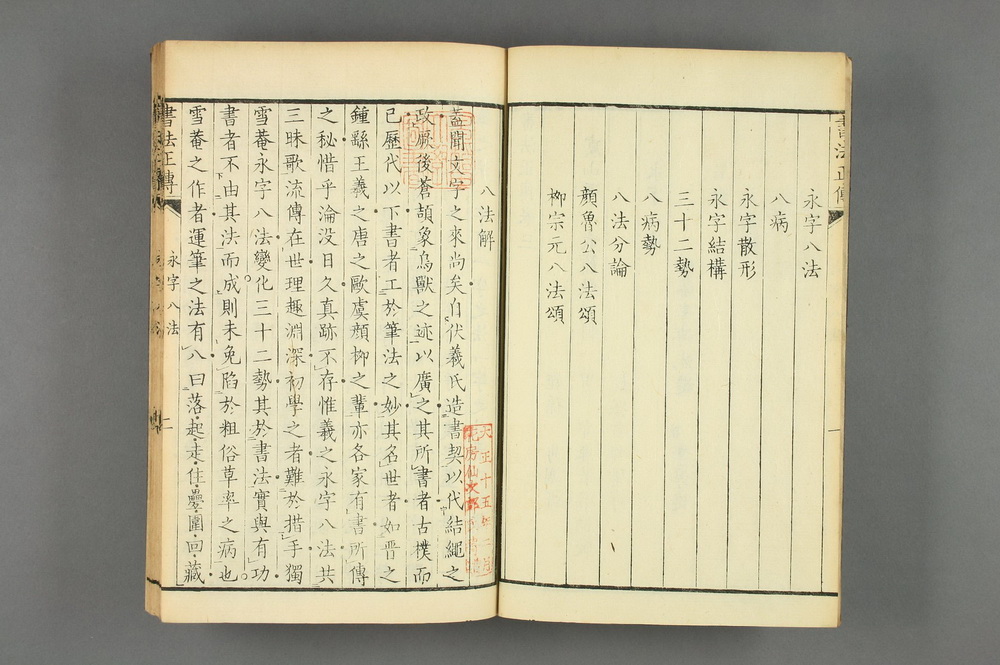 永字八法
八病
永字散形
永字結構
三十二勢
八病勢
八法分論
顏魯公八法頌
柳宗元八法頌
八法解
蓋聞文字之來尚矣自伏羲氏造書契以代結繩之
政厥後蒼頡象鳥獸之迹以廣之其所書者古樸而
已歷代以下書者工於筆法之妙其名世者如晉之
鍾繇王羲之唐之歐虞顏柳之輩亦各家有書所傳
之秘惜乎淪没日久真跡不存惟羲之永字八法共
三昧歌流傳在世理趣淵深初學之者難於措手獨
雪菴永字八法變化三十二勢其於書法實與有功
書者不由其法而成則未免陷於粗俗草率之病也
雪菴之作者運筆之法有八曰落起走住疊圍回藏
書法正傳
永字八法
二
大正十五年